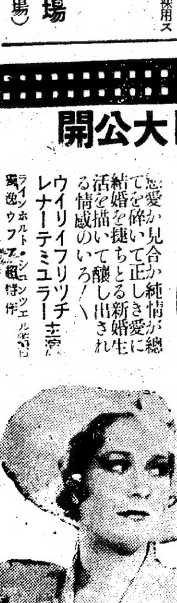 場
場）
採用ス
開公大
恋愛か見合か純情が總
てを碎いて正しき愛に
結婚を捷ちとる新婚生
活を描いて醸し出され
る情感のいろ〱
ウイリイフリツチ
レナーテミユラー主演
ラインホルト・シユンツエル監督
獨逸ウフア超特作